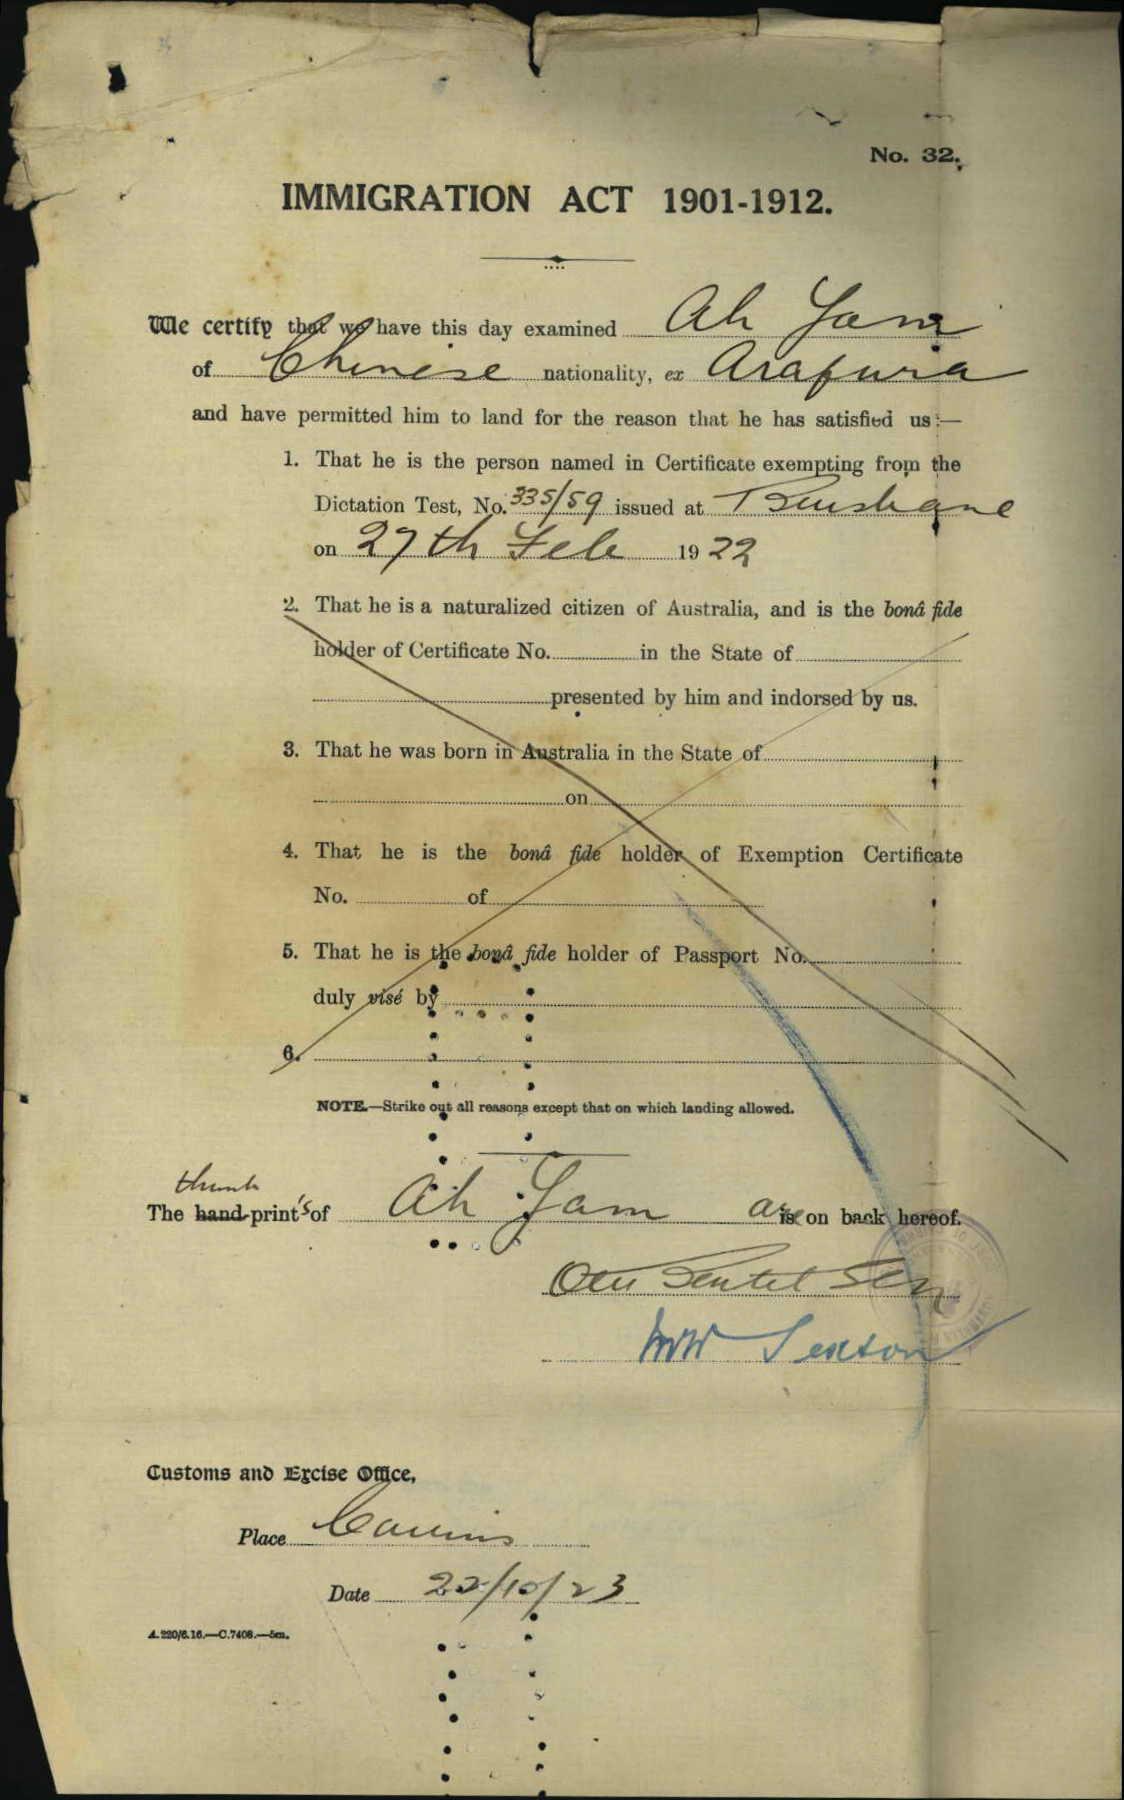 No. 32.
IMMIGRATION ACT 1901-1912.
We certify that we have this day examined Ah Yam
of Chinese nationality, ex Arafura
and have permitted him to land for the reason that he has satisfied us:—
1. That he is the person named in Certificate exempting from the
Dictation Test, No. 335/59 issued at Brisbane
on 27th Feb 1922
2. That he is a naturalized citizen of Australia, and is the bonâ fide
holder of Certificate No. in the State of
presented by him and indorsed by us.
3. That he was born in Australia in the State of
on
4. That he is the bonâ fide holder of Exemption Certificate
No. of
5. That he is the bonâ fide holder of Passport No.
duly visé by
6.
NOTE.—Strike out all reasons except that on which landing allowed.
thumb
The hand-print's of Ah Yam are is on back hereof.
Sexton
Customs and Excise Office,
Place Cairns
Date 22/10/23
A.220/6.16.—C.7408.—5m.